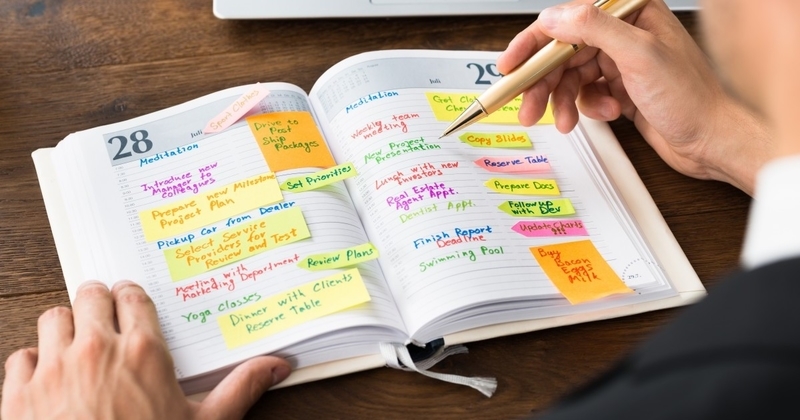 28
Juli
Sport Clothes
Meditation
Drive to
Post
Ship
Packages
Introduce new
Manager to
Colleagues
Set Priorities
Prepare new Milestone
Project Plan
Pickup Car from Dealer
Select Service
Providers for
Review and Test
Meeting with
Marketing Department
Review Plans
Yoga Classes
Dinner with Clients
Reserve Table
Juli
29
Meditation
Weekly team
meeting
Copy Slides
New Project
Presentation
Reserve Table
Lunch with new
Investors
Prepare Docs
Real Estate
Agent Appt.
Follow up
with Dev
Dentist Appt.
Update Charts
Finish Report
Deadline
Buy
Bacon
Eggs
Milk
Swimming Pool